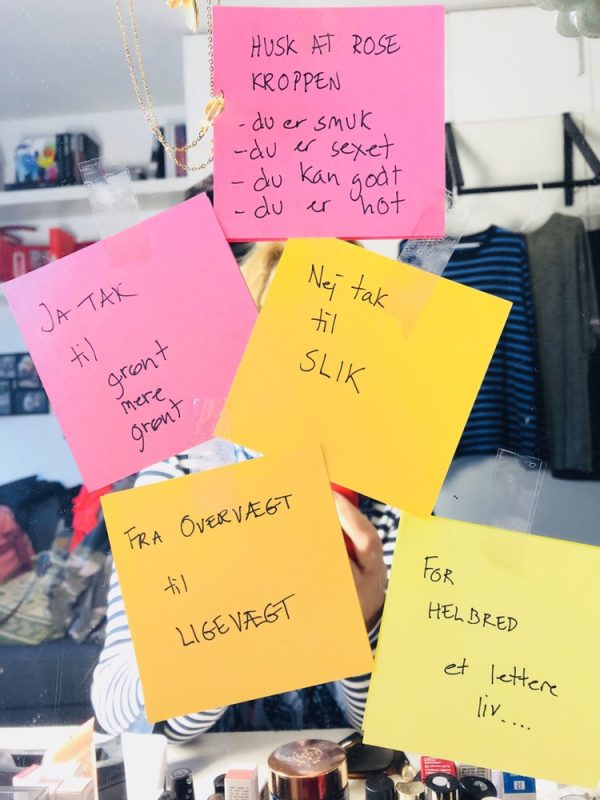 HUSK AT ROSE
KROPPEN
- du er smuk
- du er sexet
- du kan godt
- du er hot
JA TAK
til
grønt
mere
grønt
Nej tak
til
SLIK
FRA OVERVÆGT
til
LIGEVÆGT
FOR
HELBRED
et lettere
liv....